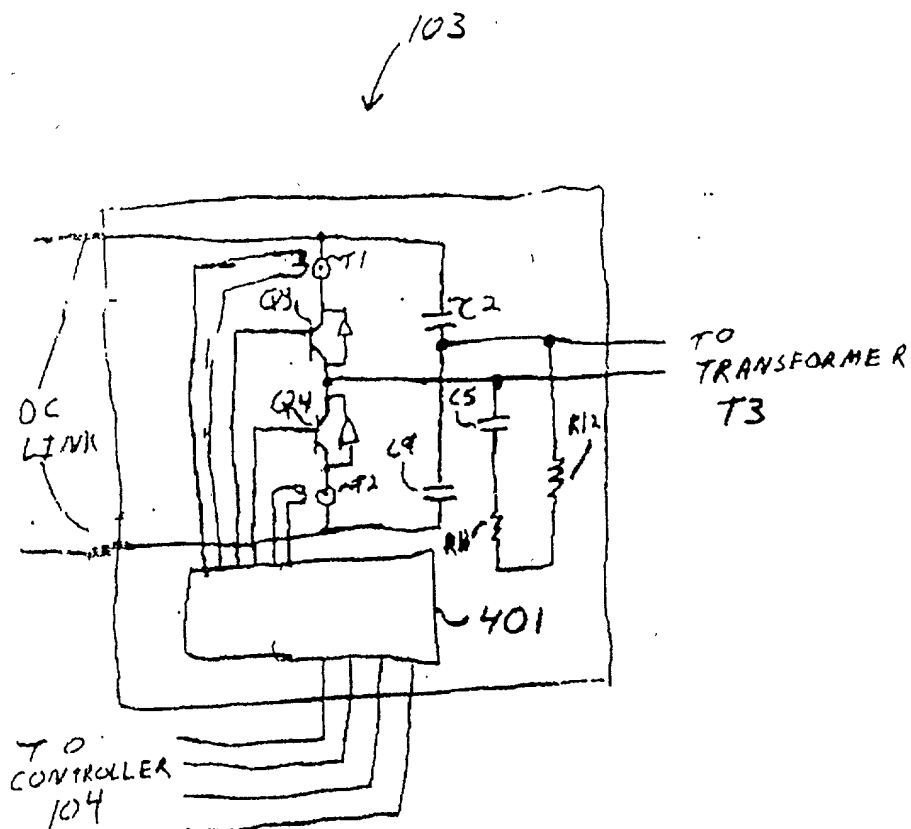 103
T1
Q3
C2
TO
TRANSFORMER
T3
DC
LINK
Q4
C5
R12
C4
T2
R11
401
TO
CONTROLLER
104